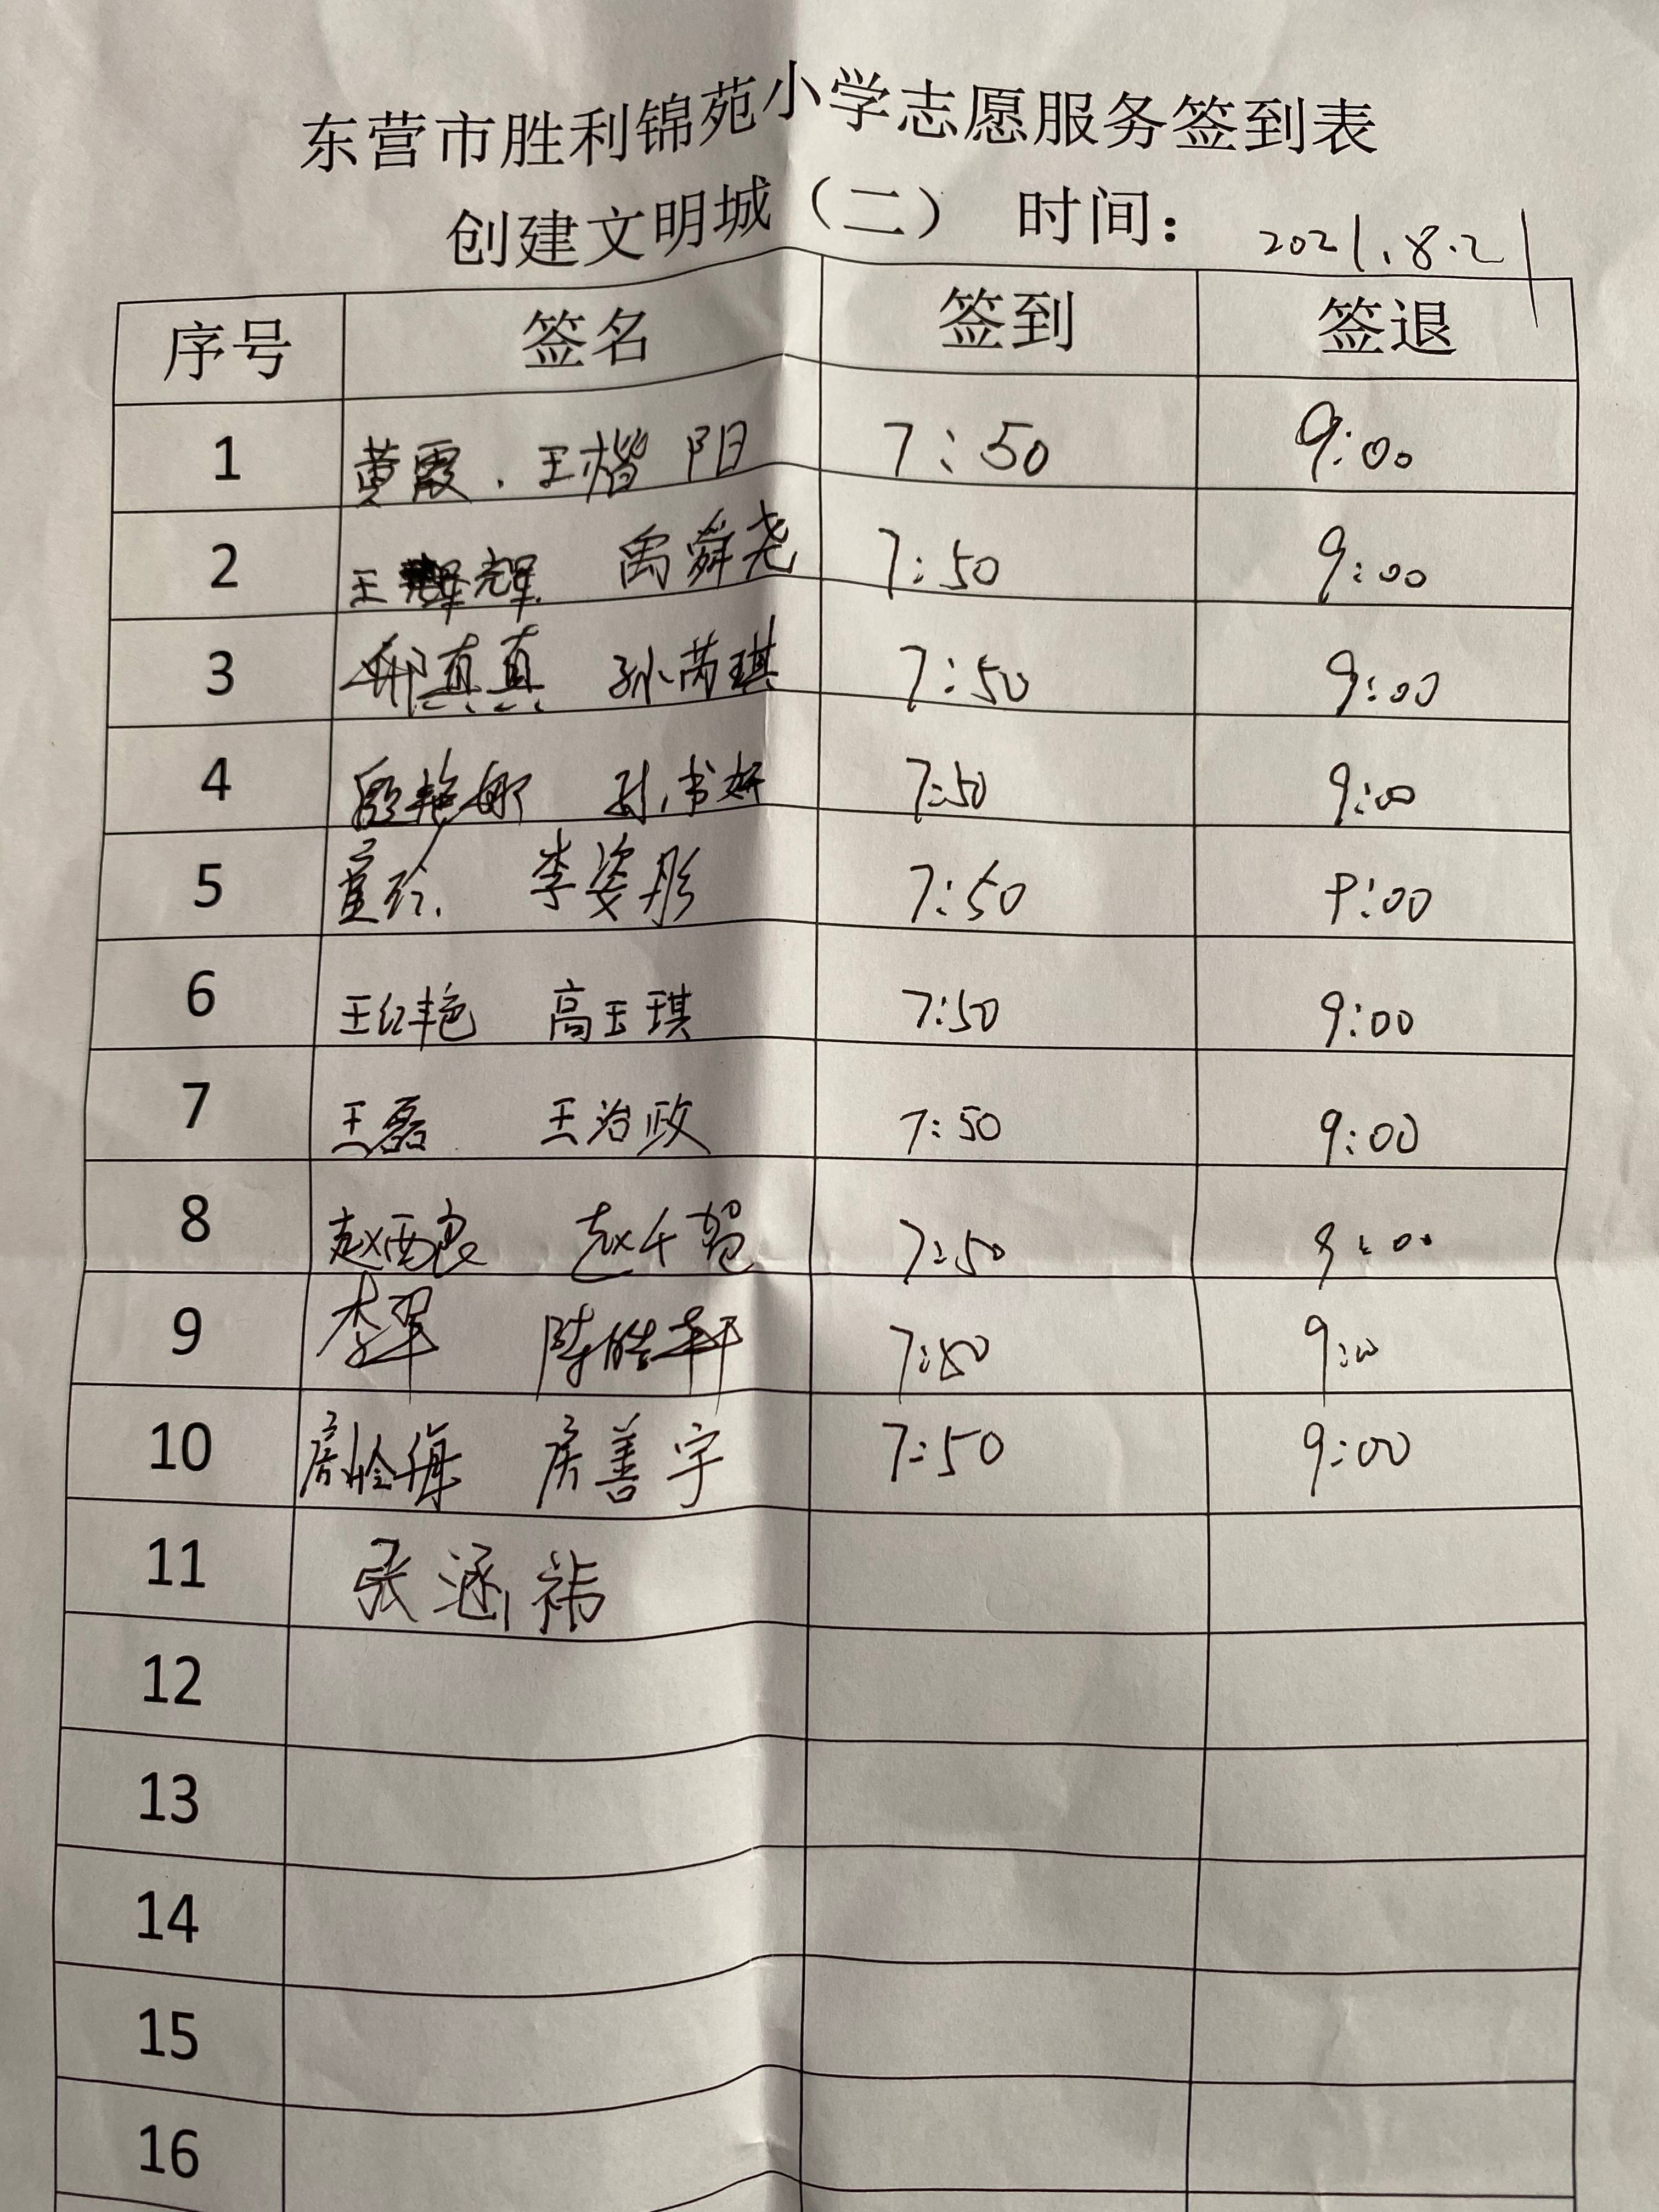 东营市胜利锦苑小学志愿服务签到表
创建文明城（二） 时间：2021.8.21
序号 签名 签到 签退
1 黄霞、王楷阳 7:50 9:00
2 王辉 禹舜尧 7:50 9:00
3 邴真真 孙芮琪 7:50 9:00
4 殷艳娜 孙书妍 7:50 9:00
5 董 李姿彤 7:50 9:00
6 王红艳 高玉琪 7:50 9:00
7 王磊 王治政 7:50 9:00
8 赵西良 赵千贺 7:50 9:00
9 李翠 陈皓轩 7:50 9:00
10 房善宇 7:50 9:00
11 张涵祎
12
13
14
15
16